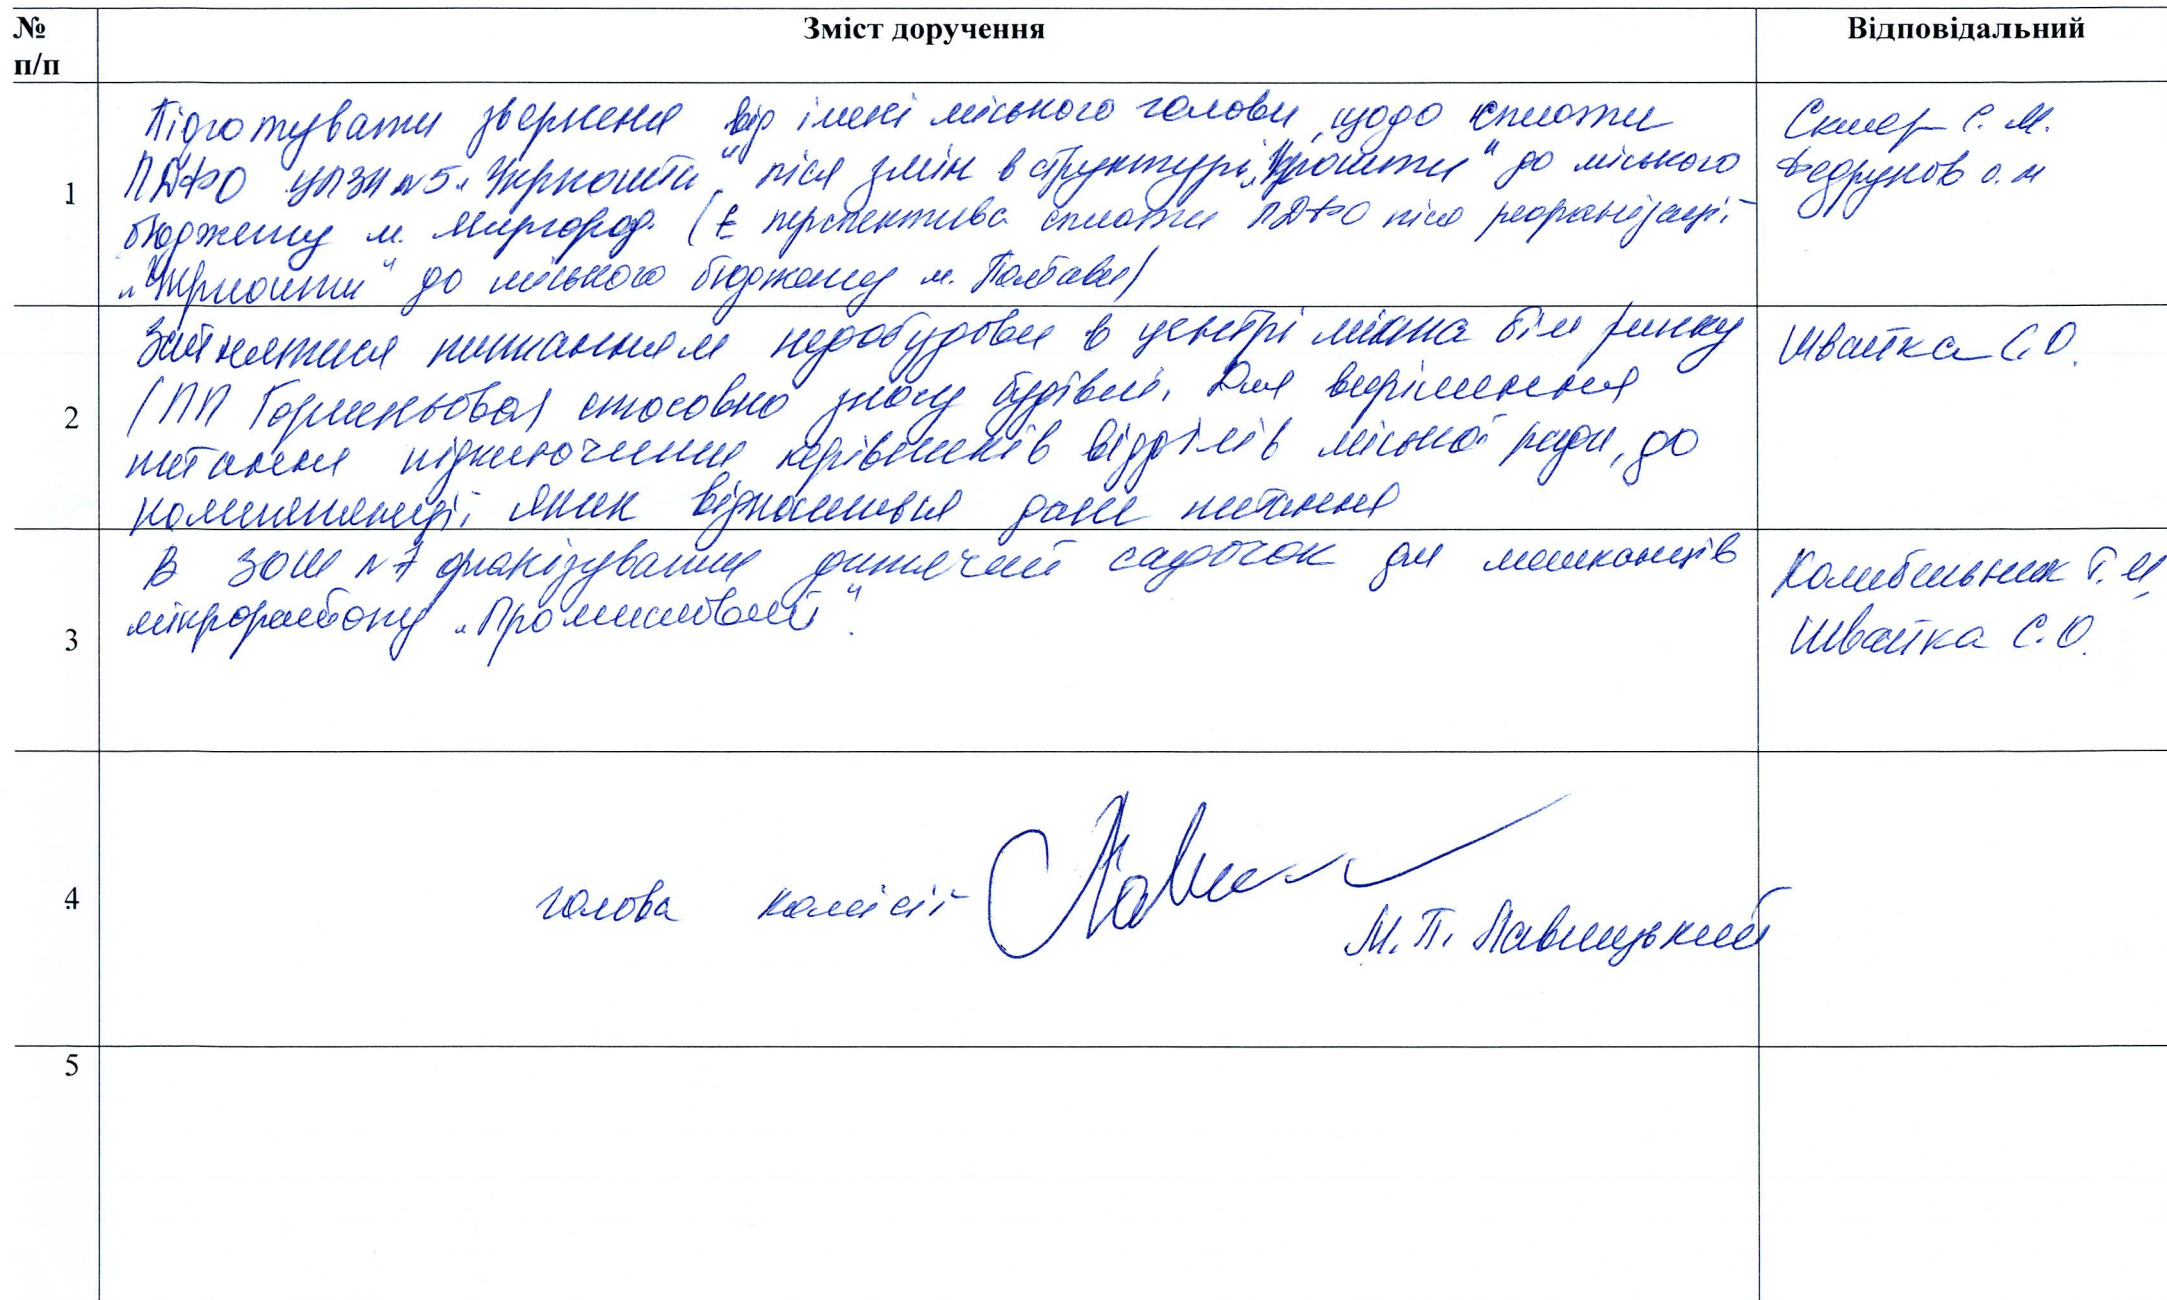 № Зміст доручення Відповідальний
п/п
Підготувати звернення від імені міського голови, щодо сплати Скляр С. М.
1 ПДФО ЦПЗ №5 „Укрпошти" після змін в структурі „Укрпошти" до міського Федрунов О. М
бюджету м. Миргород. (Є перспектива сплати ПДФО після реорганізації
„Укрпошти" до міського бюджету м. Полтави)
Зайнятися питанням недобудови в центрі міста біля ринку Швайка С.О.
2 (ПП Горпиньова) стосовно зносу будівлі. Для вирішення
питання підключити керівників відділів міської ради, до
компетенції яких відноситься дане питання
В ЗОШ №7 організувати дитячий садочок для мешканців Колибельник Т. І,
3 мікрорайону „Промисловий". Швайка С.О.
4 голова комісії М. П. Лавицький
5